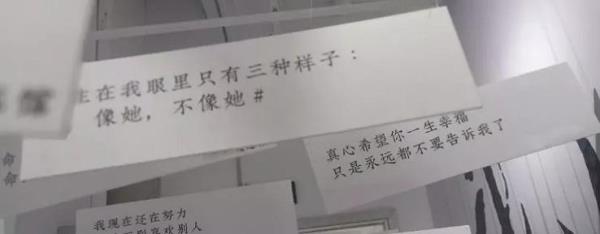 生在我眼里只有三种样子：
像她，不像她#
真心希望你一生幸福
只是永远都不要告诉我了
命
命
我现在还在努力
喜欢别人